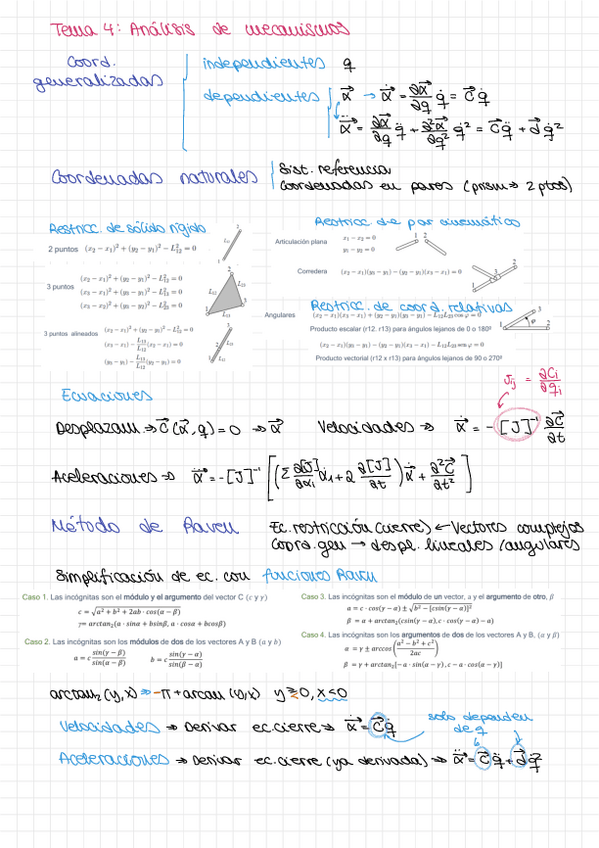 Tema 4: Análisis de mecanismos
Coord. generalizadas
independientes q
dependientes α⃗ → α̇⃗ = ∂α⃗/∂q q̇ = C⃗ q̇
α̈⃗ = ∂α⃗/∂q q̈ + ∂²α⃗/∂q² q̇² = C⃗ q̈ + d⃗ q̇²
Coordenadas naturales
Sist. referencia
Coordenadas en pares (prism → 2 ptos)
Restricc. de sólido rígido
2 puntos (x₂ − x₁)² + (y₂ − y₁)² − L²₁₂ = 0
3 puntos
(x₂ − x₁)² + (y₂ − y₁)² − L²₁₂ = 0
(x₃ − x₁)² + (y₃ − y₁)² − L²₁₃ = 0
(x₃ − x₂)² + (y₃ − y₂)² − L²₂₃ = 0
3 puntos alineados
(x₂ − x₁)² + (y₂ − y₁)² − L²₁₂ = 0
(x₃ − x₁) − L₁₃/L₁₂ (x₂ − x₁) = 0
(y₃ − y₁) − L₁₃/L₁₂ (y₂ − y₁) = 0
Restricc. de par cinemático
Articulación plana
x₁ − x₂ = 0
y₁ − y₂ = 0
Corredera (x₂ − x₁)(y₃ − y₁) − (y₂ − y₁)(x₃ − x₁) = 0
Restricc. de coord. relativas
Angulares
Producto escalar (r12. r13) para ángulos lejanos de 0 o 180º
Producto vectorial (r12 x r13) para ángulos lejanos de 90 o 270º
Ecuaciones
Jᵢⱼ = ∂Cᵢ/∂qⱼ
Desplazam. → C⃗(α⃗, q) = 0 → α⃗
Velocidades → α̇⃗ = −[J]⁻¹ ∂C⃗/∂t
Aceleraciones → α̈⃗ = −[J]⁻¹ [(Σ ∂[J]/∂αᵢ α̇ᵢ + 2 ∂[J]/∂t) α̇⃗ + ∂²C⃗/∂t²]
Método de Raven
Ec. restricción (cierre) ← Vectores complejos
Coord. gen → despl. lineales/angulares
Simplificación de ec. con funciones Raven
Caso 1. Las incógnitas son el módulo y el argumento del vector C (c y γ)
c = √(a² + b² + 2ab · cos(α − β))
γ = arctan₂(a · sinα + bsinβ, a · cosα + bcosβ)
Caso 2. Las incógnitas son los módulos de dos de los vectores A y B (a y b)
a = c sin(γ − β)/sin(α − β) b = c sin(γ − α)/sin(β − α)
Caso 3. Las incógnitas son el módulo de un vector, a y el argumento de otro, β
a = c · cos(γ − α) ± √(b² − [csin(γ − α)]²)
β = α + arctan₂(csin(γ − α), c · cos(γ − α) − a)
Caso 4. Las incógnitas son los argumentos de dos de los vectores A y B, (α y β)
α = γ ± arccos((a² − b² + c²)/2ac)
β = γ + arctan₂[−a · sin(α − γ), c − a · cos(α − γ)]
arctan₂(y,x) → −π + arctan(y/x) y ≥ 0, x < 0
Velocidades → Derivar ec. cierre → α̇⃗ = C⃗ q̇
solo dependen de q
Aceleraciones → Derivar ec. cierre (ya derivada) → α̈⃗ = C⃗ q̈ + d⃗ q̇²